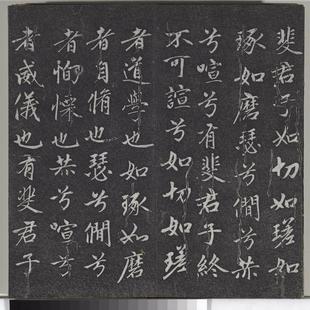 斐君子如切如瑳如
琢如磨瑟兮僩兮赫
兮喧兮有斐君子終
不可諠兮如切如瑳
者道學也如琢如磨
者自脩也瑟兮僩兮
者恂慄也赫兮喧兮
者威儀也有斐君子